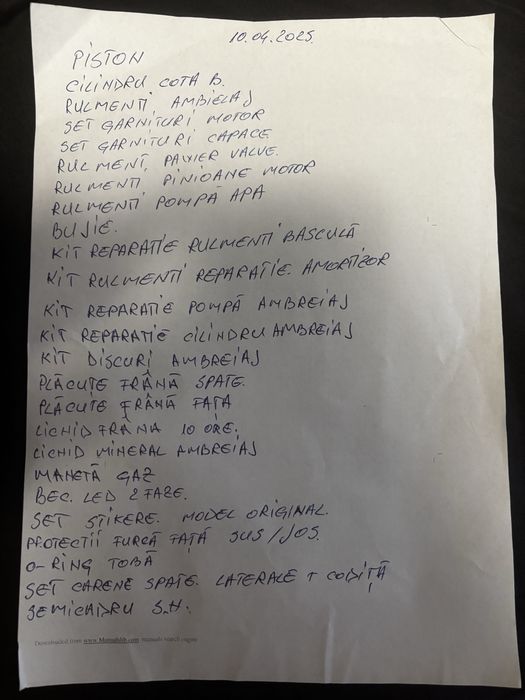 10.04.2025.
PISTON
CILINDRU COTA B.
RULMENTI AMBIELAJ
SET GARNITURI MOTOR
SET GARNITURI CAPACE
RULMENTI PAWER VALVE.
RULMENTI PINIOANE MOTOR
RULMENTI POMPĂ APA
BUJIE.
KIT REPARATIE RULMENTI BASCULĂ
KIT RULMENTI REPARATIE AMORTIZOR
KIT REPARATIE POMPĂ AMBREIAJ
KIT REPARATIE CILINDRU AMBREIAJ
KIT DISCURI AMBREIAJ
PLĂCUTE FRÂNĂ SPATE.
PLĂCUTE FRÂNĂ FAȚA
LICHID FRÂNA 10 ORE.
LICHID MINERAL AMBREIAJ
MANETĂ GAZ
BEC. LED 2 FAZE.
SET STIKERE. MODEL ORIGINAL.
PROTECTII FURCĂ FAȚĂ SUS/JOS.
O-RING TOBĂ
SET CARENE SPATE LATERALE + CODIȚĂ
SEMICADRU S.H.
Downloaded from www.Manualslib.com manuals search engine